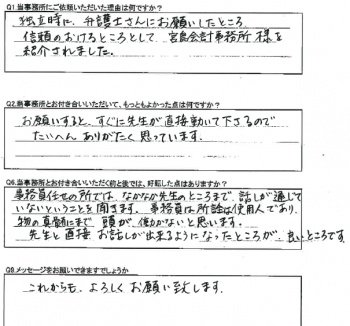 Q1.当事務所にご依頼いただいた理由は何ですか?
独立時に、弁護士さんにお願いしたところ
信頼のおけるところとして、宮島会計事務所 様を
紹介されました。
Q2.当事務所とお付き合いいただいて、もっともよかった点は何ですか?
お願いすると、すぐに先生が直接動いて下さるので
たいへん ありがたく 思っています。
Q6.当事務所とお付き合いいただく前と後では、好転した点はありますか?
事務員任せの所では、なかなか先生のところまで、話しが通じて
いないということを聞きます。事務員は所詮は使用人であり、
物の真髄にまで 頭が、働かないと思います。
先生と直接 お話しが出来るようになったところが、良いところです
Q9.メッセージをお願いできますでしょうか
これからも、よろしくお願い致します。